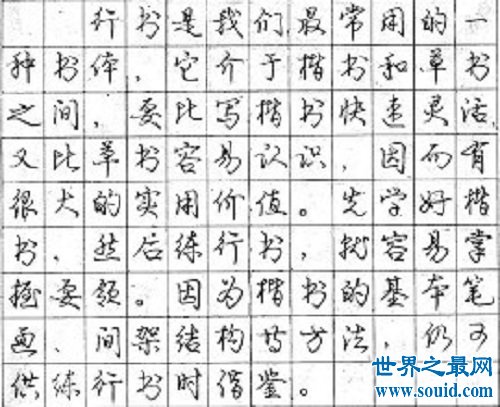 行书是我们最常用的一
种书体，它介于楷书和草书
之间，要比写楷书快速灵活，
又比草书容易认识，因而有
很大的实用价值。先学好楷
书，然后练行书，就容易掌
握要领。因为楷书的基本笔
画、间架结构等方法，仍可
供练行书时借鉴。
世界之最网
www.souid.com